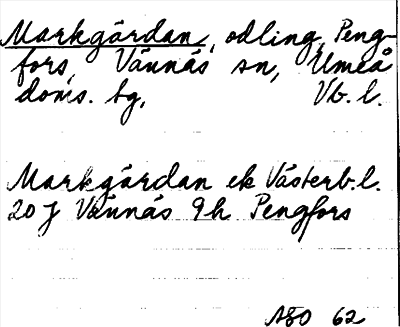 Markgärdan, odling, Peng-
fors, Vännäs sn, Umeå
doms. tg, Vb. l.
Markgärdan ek Västerb.l.
20 J Vännäs 9h Pengfors
ASO 62